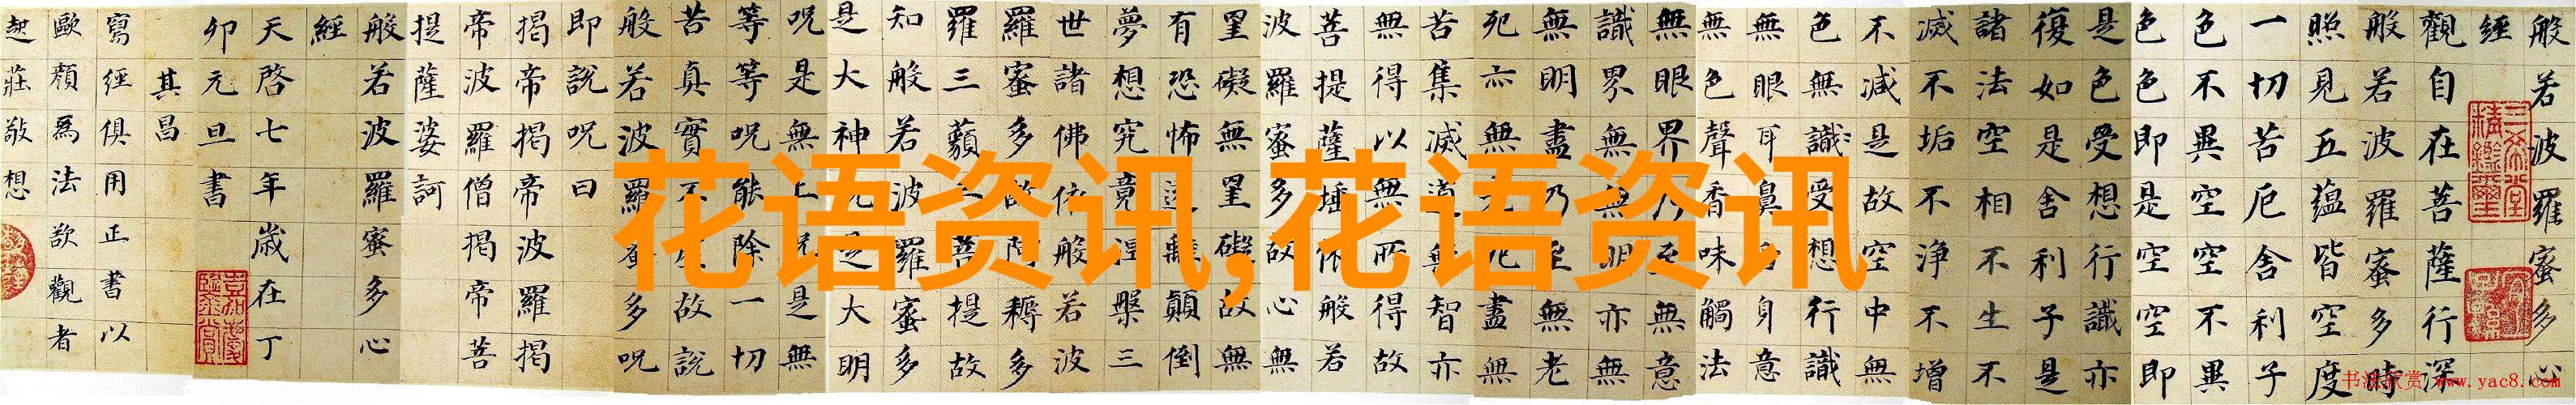 般若波羅蜜多心
經
觀自在菩薩行深
般若波羅蜜多時
照見五蘊皆空度
一切苦厄舍利子
色不異空空不異
色色即是空空即
是色受想行識亦
復如是舍利子是
諸法空相不生不
滅不垢不淨不增
不減是故空中無
色無識受想行識
無眼耳鼻舌身意
無色聲香味觸法
無眼界乃至無意
識界無無明亦無
無明盡乃至無老
死亦無老死盡無
苦集滅道無智亦
無得以無所得故
菩提薩埵依般若
波羅蜜多故心無
罣礙無罣礙故無
有恐怖遠離顛倒
夢想究竟涅槃三
世諸佛依般若波
羅蜜多故阿耨多
羅三藐三菩提故
知般若波羅蜜多
是大神呪是大明
呪是無上呪是無
等等呪能除一切
苦真實不虛故說
般若波羅蜜多呪
即說呪曰
揭帝揭帝波羅揭
帝波羅僧揭帝菩
提薩婆訶
般若波羅蜜多心
經
天啓七年歲在丁
卯元旦書
其昌
寫經俱用正書以
歐顏爲法欲觀者
起莊敬想
花语资讯,花语资讯
书法欣赏 www.yac8.com